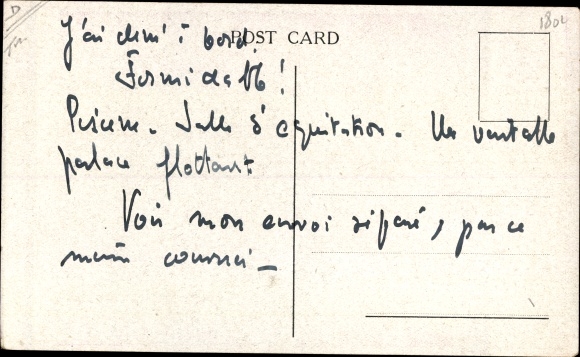 D
1802
POST CARD
J'ai diné à bord.
Formidable !
Piscine. Salle d'equitation. Un veritable
palace flottant
Voir mon envoi séparé, par ce
même courrier _